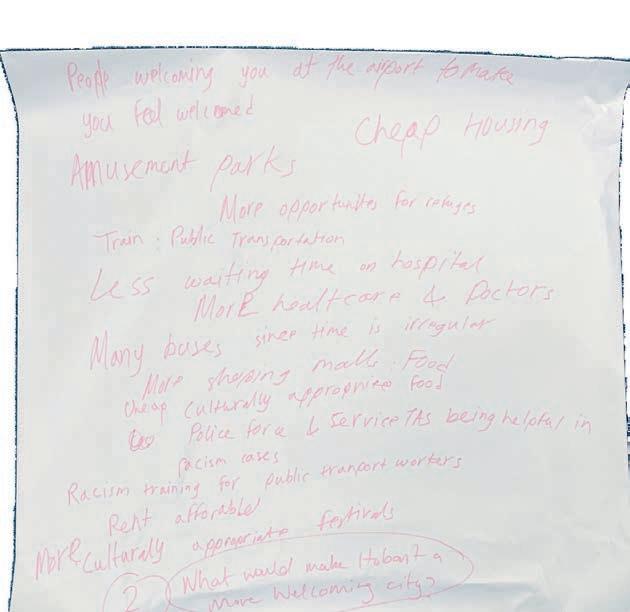 People welcoming you at the airport to make
you feel welcomed
Cheap Housing
Amusement parks
More opportunites for refuges
Train : Public Transportation
Less waiting time on hospital
MorE healtcare & Doctors
Many buses since time is irregular
More shopping malls : Food
cheap culturally appropriate food
Police force & Service TAS being helpful in
racism cases
Racism training for public tranport workers
Rent afforable
More culturally appropriate festivals
2 What would make Hobart a
more Welcoming city?